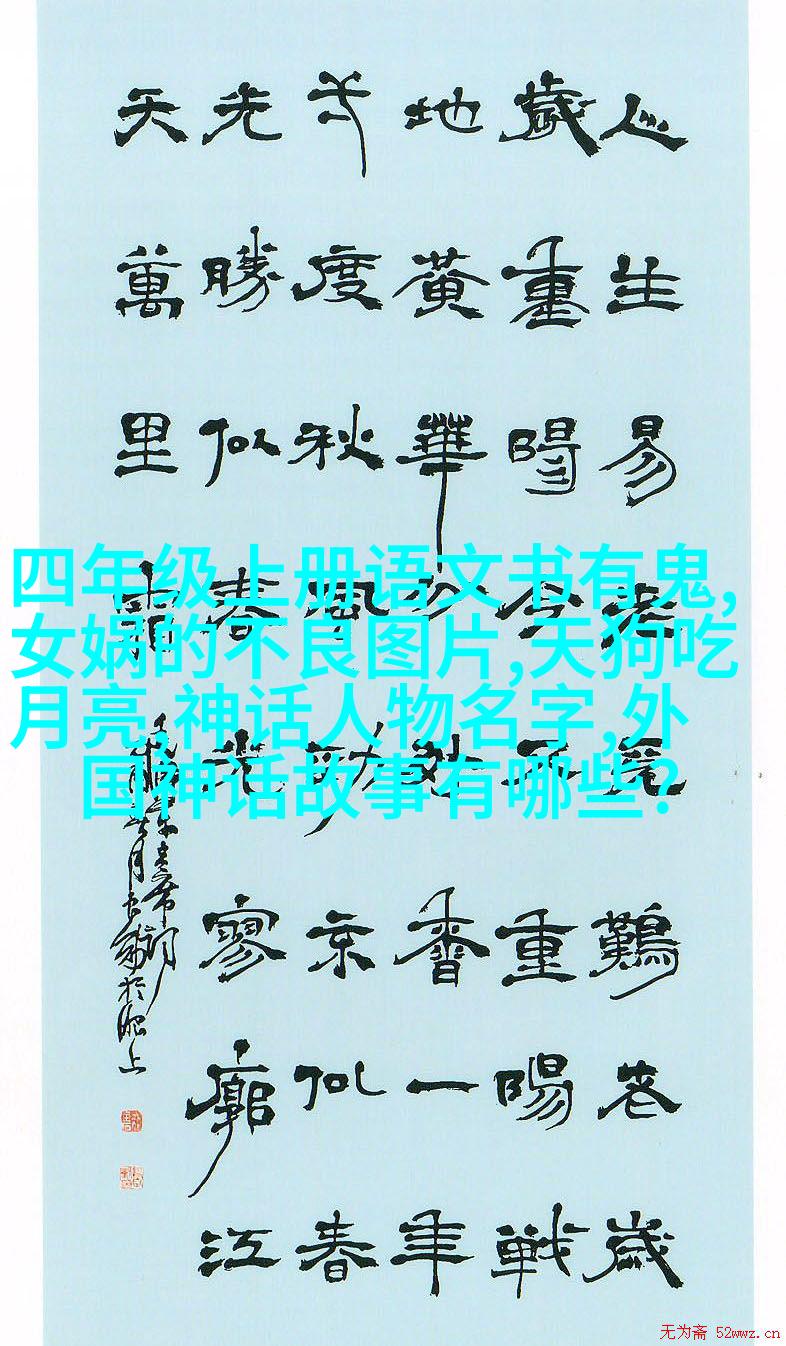 人生易老天難老歲
歲重陽今又重陽戰
地黃華分外香一年
一度秋風勁不似春
光勝似春光寥廓江
天萬里霜
主席詞
於肥上
四年级上册语文书有鬼,
女娲的不良图片,天狗吃
月亮,神话人物名字,外
国神话故事有哪些?
无为斋 52wwz.cn